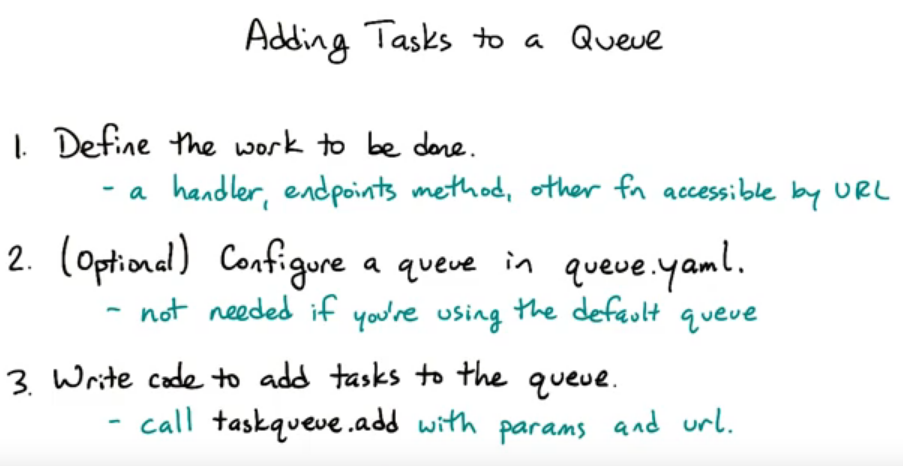 Adding Tasks to a Queue
1. Define the work to be done.
- a handler, endpoints method, other fn accessible by URL
2. (Optional) Configure a queue in queue.yaml.
- not needed if you're using the default queue
3. Write code to add tasks to the queue.
- call taskqueue.add with params and url.